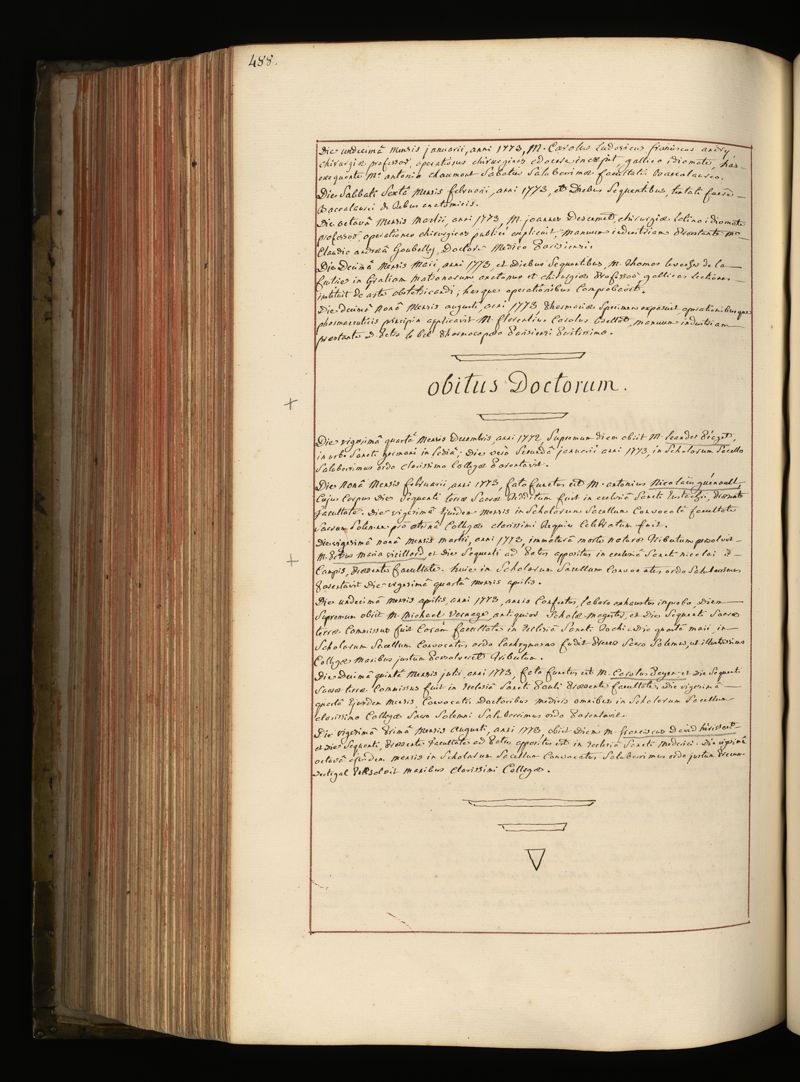 488.
Die undecimâ Mensis januarii, anni 1773, M. Carolus Ludovicus franciscus andry
chirurgiæ professor, operationes chirurgicas edocere incæpit, gallico idiomate, has
exequente M.º antonio chaumont Sabatier Saluberrimæ facultatis Baccalaureo.
Die Sabbati Sextâ Mensis februarii, anni 1773, et Diebus Sequentibus, tentati fuere
Baccalaurei de Rebus anatomicis.
Die octavâ Mensis Martii, anni 1773, M. joannes Descemet, chirurgiæ latino idiomate
professor, operationes chirurgicas publicè explicuit, Manuum industriam Præstante M.º
Claudio andreâ Goubelly, Doctore Medico Parisiensi.
Die Decimâ Mensis Maii, anni 1773, et Diebus Sequentibus, M. Thomas levasseur de la
in Gratiam matronarum anatomes et chirurgiæ Professor, gallicas lectiones
instituit de arte obstetricandi; hasque operationibus Comprobavit.
Die decimâ Nonâ Mensis augusti, anni 1773, Pharmaciæ Specimen exposuit, operationibusque
pharmaceuticis præcipua applicavit M. florentius Carolus Bellot, manuum industriam
præstante D. Petro le bel Pharmacopœo Parisiensi Peritissimo.
obitus Doctorum.
Die vigesimâ quartâ Mensis Decembris, anni 1772, Supremum diem obiit M. leander Péaget,
in urbe Sancti germani in lediâ; Die verò Secundâ januarii anni 1773, in Scholarum Sacello
Saluberrimus ordo clarissimo Collegæ Parentavit.
Die Nonâ Mensis februarii, anni 1773, fato functus est M. antonius Nicolaüs guénault,
Cujus Corpus Die Sequenti terræ Sacræ Redditum fuit in ecclesiâ Sancti Eustachii, Præsente
facultate. Die vigesimâ Ejusdem mensis in Scholarum Sacellum Convocatâ facultate
Sacrum Solemne pro æternâ Collegæ clarissimi Requie Celebratum fuit.
Die vigesimâ nonâ Mensis martii, anni 1773, immaturâ morte naturæ Tributum persolvit
M. Petrus maria vieillard, et Die Sequenti ad Patres appositus in ecclesiâ Sancti nicolai à
Campis, Præsente facultate. huic in Scholarum Sacellum Convocatus ordo Saluberrimus
Parentavit Die vigesimâ quartâ mensis aprilis.
Die undecimâ mensis aprilis, anni 1773, annis Confectus, labore exhaustus improbo, Diem
Supremum obiit M. Michael Vernage, antiquior Scholæ magister, et Die Sequenti Sacræ
terræ Commissus fuit Coram facultate in Ecclesiâ Sancti Rochi. Die quartâ maii in
Scholarum Sacellum Convocatus ordo lachrymans fudit Preces Sacro Solemni, ut illustrissimi
Collegæ Manibus justum Persolveret Tributum.
Die Decimâ quintâ mensis julii, anni 1773, fato functus est M. Carolus Payen et Die Sequenti
Sacræ terræ Commissus fuit in Ecclesiâ Sancti Pauli Præsente facultate. Die vigesimâ
quartâ Ejusdem Mensis Convocatis Doctoribus medicis omnibus in Scholarum Sacellum
clarissimo Collegæ Sacro Solemni Saluberrimus ordo Parentavit.
Die vigesimâ Primâ Mensis Augusti, anni 1773, obiit Diem M. franciscus David hérissant
et Die Sequenti, Præsente facultate ad Patres appositus est in Ecclesiâ Sancti Mederici. Die vigesimâ
octavâ ejusdem mensis in Scholarum Sacellum Convocatus Saluberrimus ordo justum Precum
vectigal Persolvit manibus Clarissimi Collegæ.